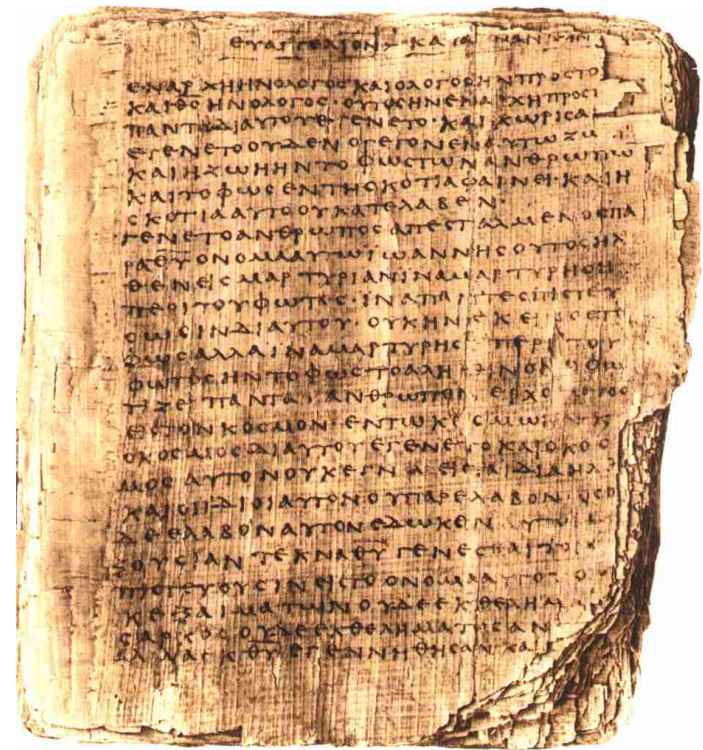 ΕΥΑΓΓΕΛΙΟΝ ΚΑΤΑ
ΕΝΑΡΧΗΗΝΟΛΟΓΟΣΚΑΙΟΛΟΓΟΣΗΝΠΡΟΣΤΟ
ΚΑΙΘΣΗΝΟΛΟΓΟΣ·ΟΥΤΟΣΗΝΕΝΑΡΧΗΠΡΟΣ
ΠΑΝΤΑΔΙΑΥΤΟΥΕΓΕΝΕΤΟ·ΚΑΙΧΩΡΙΣΑ
ΕΓΕΝΕΤΟΟΥΔΕΝΟΓΕΓΟΝΕΝΑΥΤΩΖΩ
ΚΑΙΗΖΩΗΗΝΤΟΦΩΣΤΩΝΑΝΘΡΩΠΩ
ΚΑΙΤΟΦΩΣΕΝΤΗΣΚΟΤΙΑΦΑΙΝΕΙ·ΚΑΙΗ
ΣΚΟΤΙΑΑΥΤΟΟΥΚΑΤΕΛΑΒΕΝ
ΕΓΕΝΕΤΟΑΝΘΡΩΠΟΣΑΠΕΣΤΑΛΜΕΝΟΣΠΑ
ΡΑΘΥΟΝΟΜΑΑΥΤΩΙΩΑΝΝΗΣΟΥΤΟΣΗΛ
ΘΕΝΕΙΣΜΑΡΤΥΡΙΑΝΙΝΑΜΑΡΤΥΡΗΣΗ
ΠΕΡΙΤΟΥΦΩΤΟΣ·ΙΝΑΠΑΝΤΕΣΠΙΣΤΕΥ
ΣΩΣΙΝΔΙΑΥΤΟΥ·ΟΥΚΗΝΕΚΕΙΝΟΣΤΟ
ΦΩΣΑΛΛΑΙΝΑΜΑΡΤΥΡΗΣΗΠΕΡΙΤΟΥ
ΦΩΤΟΣΗΝΤΟΦΩΣΤΟΑΛΗΘΙΝΟΝ
ΤΙΖΕΙΠΑΝΤΑΑΝΘΡΩΠΟΝΕΡΧΟΜΕΝΟΝ
ΕΙΣΤΟΝΚΟΣΜΟΝ·ΕΝΤΩΚΟΣΜΩΗΝΚ
ΟΚΟΣΜΟΣΔΙΑΥΤΟΥΕΓΕΝΕΤΟΚΑΙΟΚΟΣ
ΜΟΣΑΥΤΟΝΟΥΚΕΓΝΩΕΙΣΤΑΙΔΙΑΗΛΘ
ΚΑΙΟΙΙΔΙΟΙΑΥΤΟΝΟΥΠΑΡΕΛΑΒΟΝ·ΟΣΟΙ
ΔΕΕΛΑΒΟΝΑΥΤΟΝΕΔΩΚΕΝΑΥΤΟΙΣ
ΞΟΥΣΙΑΝΤΕΚΝΑΘΥΓΕΝΕΣΘΑΙΤΟΙΣ
ΠΙΣΤΕΥΟΥΣΙΝΕΙΣΤΟΟΝΟΜΑΑΥΤΟΥΟ
ΚΕΞΑΙΜΑΤΩΝΟΥΔΕΕΚΘΕΛΗΜΑ
ΣΑΡΚΟΣΟΥΔΕΕΚΘΕΛΗΜΑΤΟΣΑΝ
ΑΛΛΑΕΚΘΥΕΓΕΝΝΗΘΗΣΑΝΚΑΙ